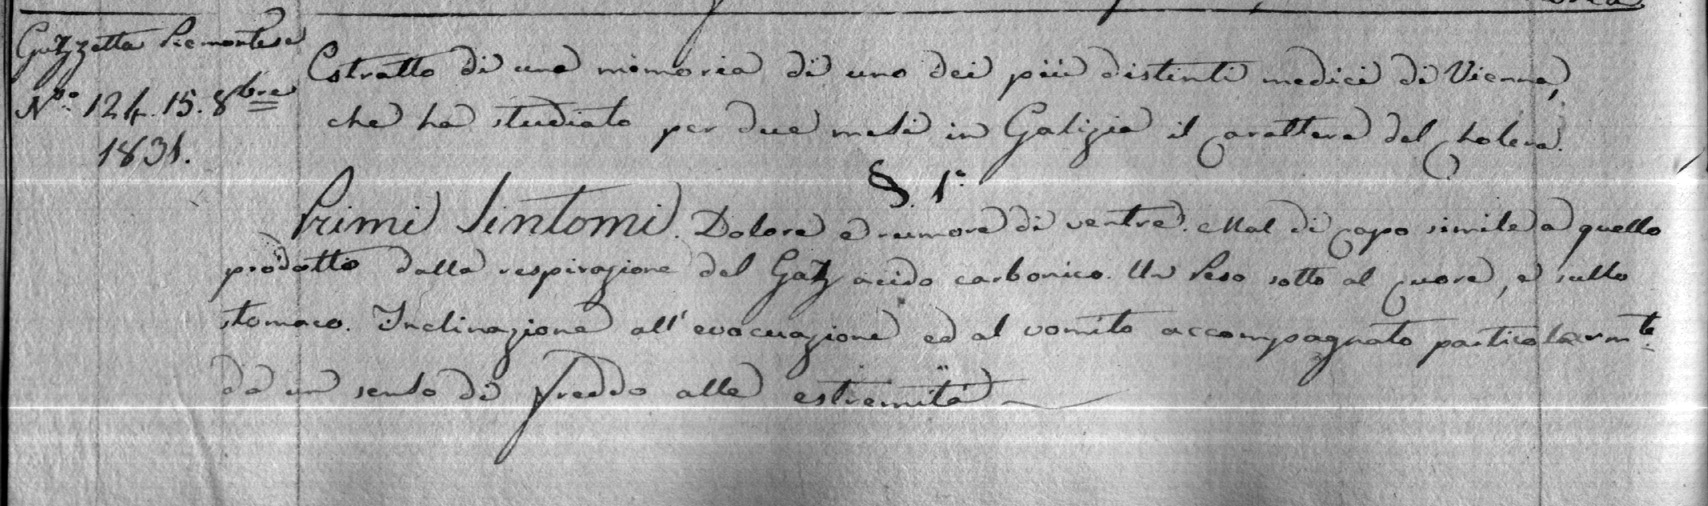 Gazzetta Piemontese
N.º 124. 15. 8bre
1831.
Estratto di una memoria di uno dei più distinti medici di Vienna,
che ha studiato per due mesi in Galizia il carattere del Cholera.
§. 1º
Primi Sintomi. Dolore e rumore di ventre. Mal di capo simile a quello
prodotto dalla respirazione del Gaz acido carbonico. Un Peso sotto al cuore, e sullo
stomaco. Inclinazione all'evacuazione ed al vomito accompagnato particolarmte
da un senso di freddo alle estremità